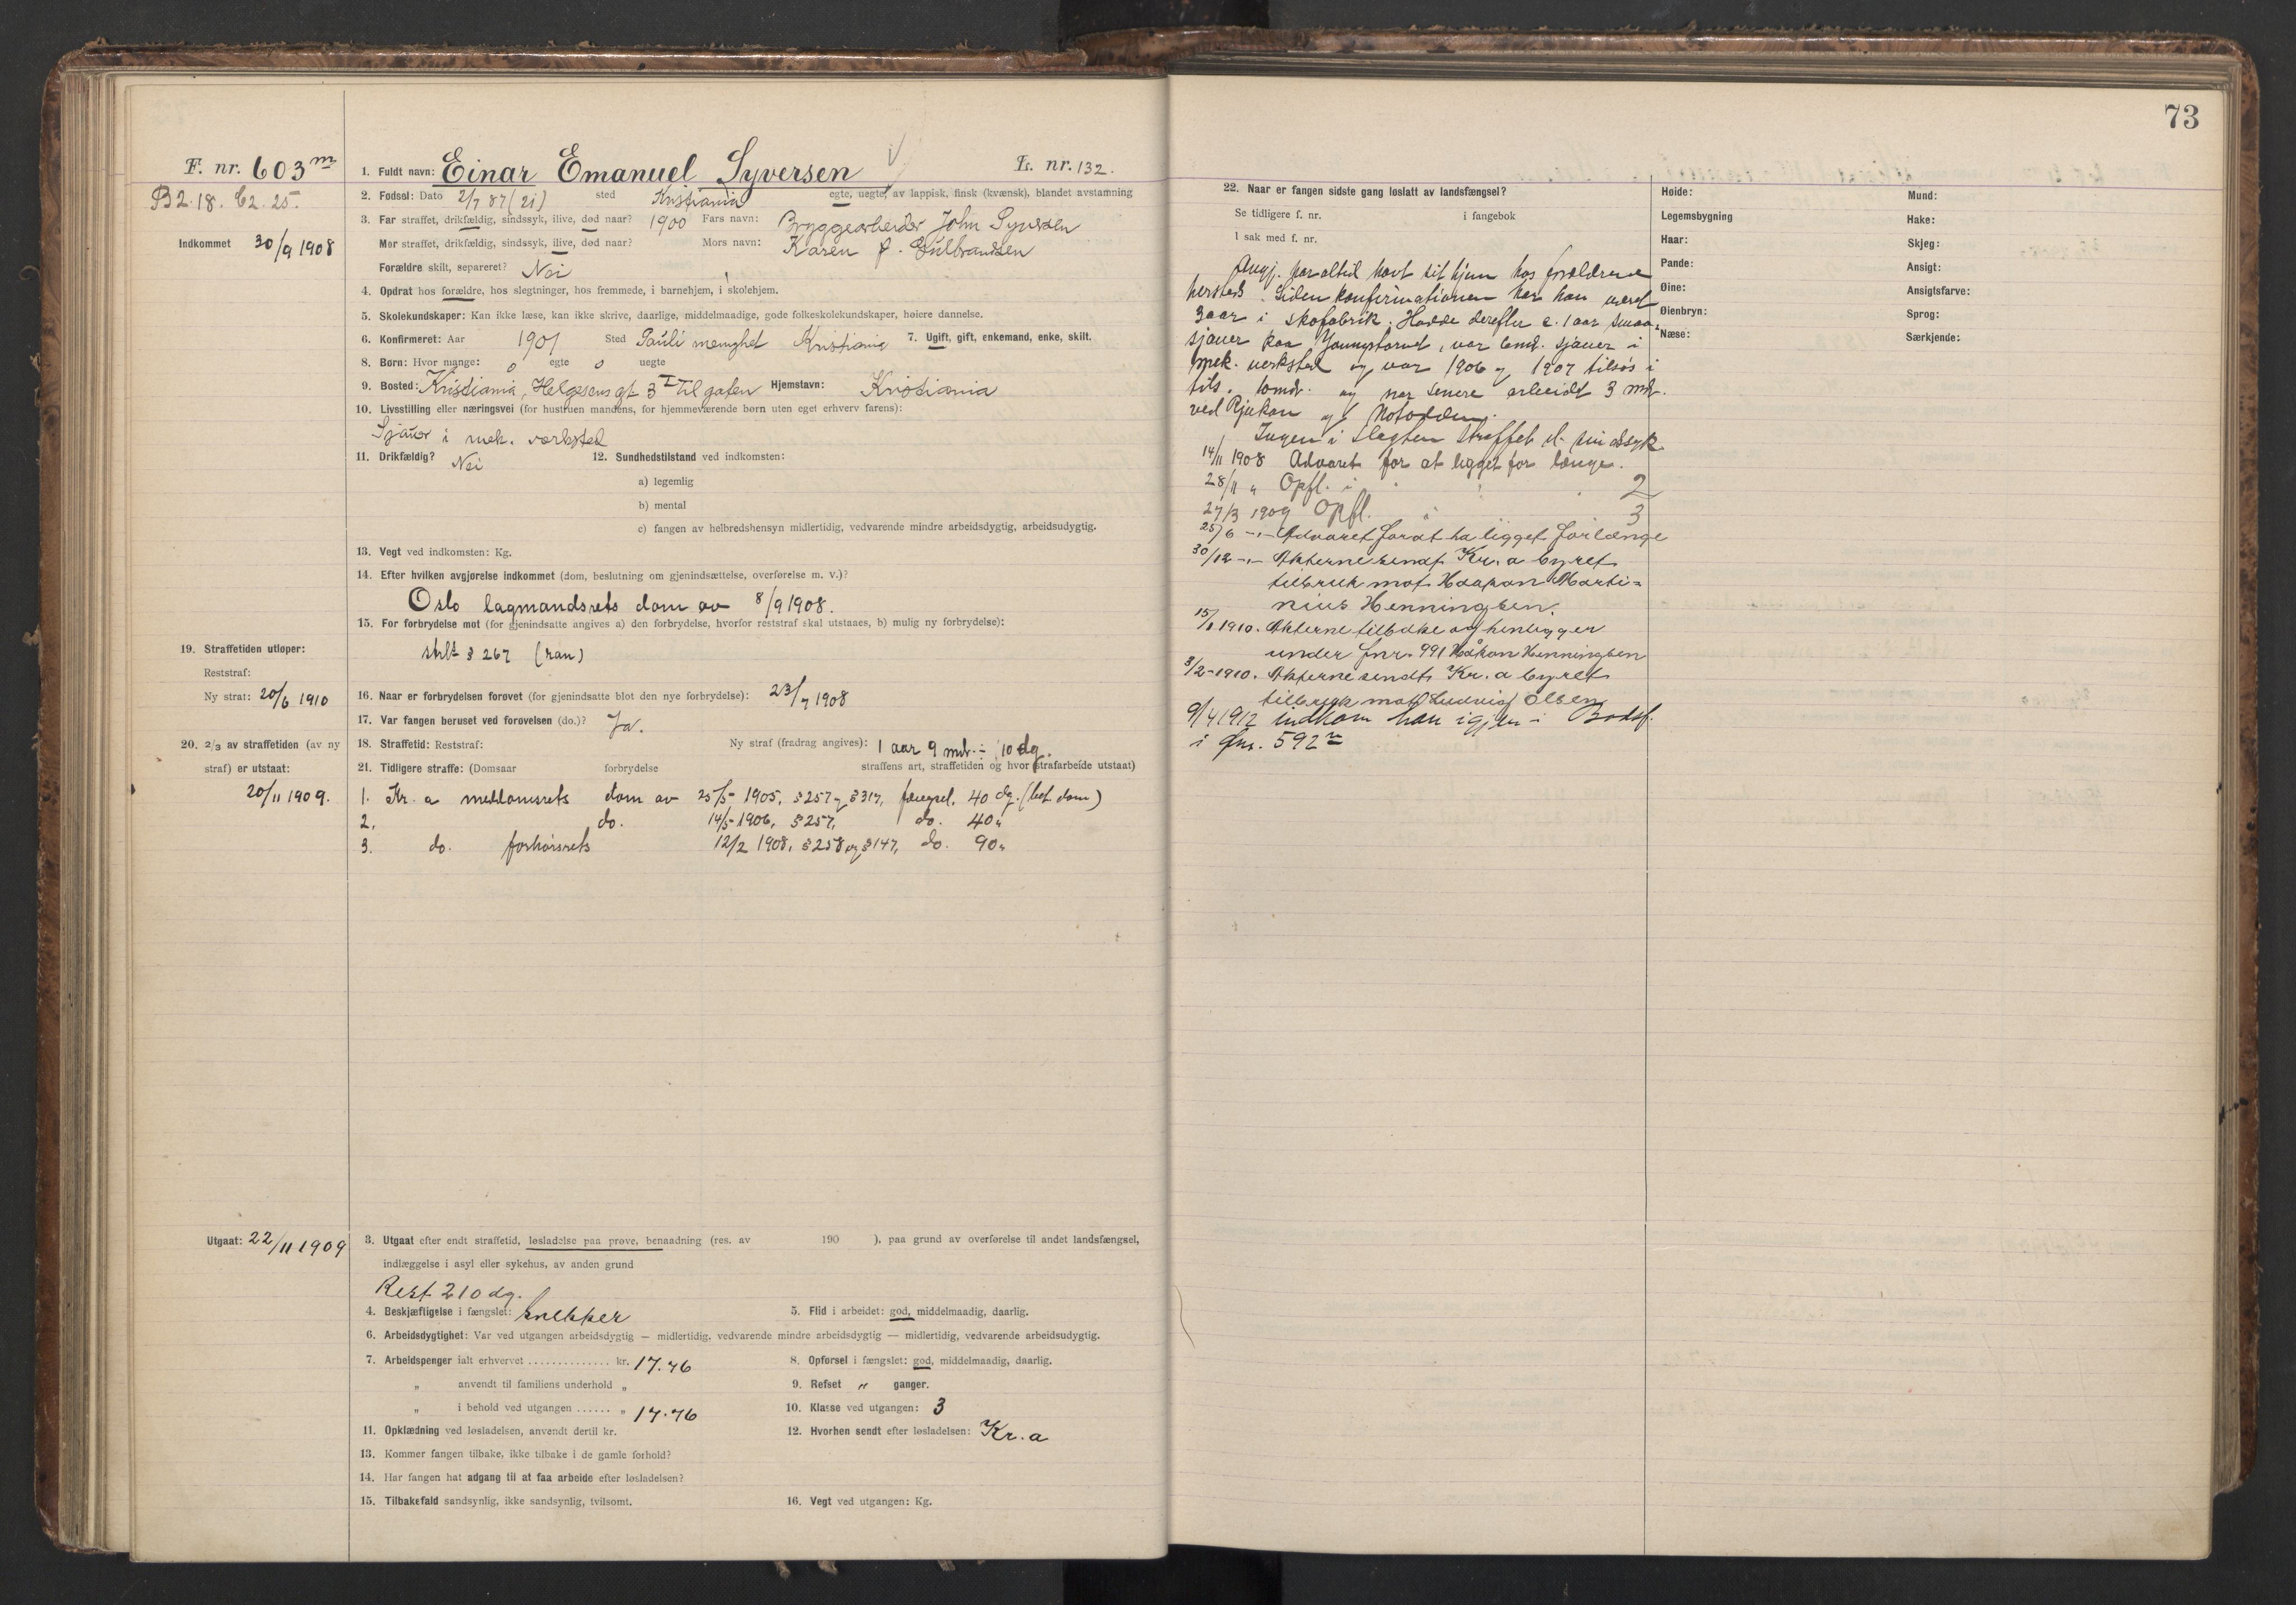 73
F. nr. 603 m
B 2. 18. C2. 25.
Indkommet 30/9 1908
1. Fuldt navn: Einar Emanuel Syversen
L. nr. 132.
2. Fødsel: Dato 2/7 87 (21) sted Kristiania egte, uegte, av lappisk, finsk (kvænsk), blandet avstamning
3. Far straffet, drikfældig, sindssyk, ilive, død naar? 1900 Fars navn: Bryggearbeider John Syversen
Mor straffet, drikfældig, sindssyk, ilive, død naar? Mors navn: Karen f. Gulbrandsen
Forældre skilt, separeret? Nei
4. Opdrat hos forældre, hos slegtninger, hos fremmede, i barnehjem, i skolehjem.
5. Skolekundskaper: Kan ikke læse, kan ikke skrive, daarlige, middelmaadige, gode folkeskolekundskaper, høiere dannelse.
6. Konfirmeret: Aar 1901 Sted Pauli menighet Kristiania 7. Ugift, gift, enkemand, enke, skilt.
8. Børn: Hvor mange: 0 egte 0 uegte
9. Bosted: Kristiania, Helgesens gt. 3 I til gaten Hjemstavn: Kristiania
10. Livsstilling eller næringsvei (for hustruen mandens, for hjemmeværende børn uten eget erhverv farens):
Sjauer i mek. verksted
11. Drikfældig? Nei 12. Sundhedstilstand ved indkomsten:
a) legemlig
b) mental
c) fangen av helbredshensyn midlertidig, vedvarende mindre arbeidsdygtig, arbeidsudygtig.
13. Vegt ved indkomsten: Kg.
14. Efter hvilken avgjørelse indkommet (dom, beslutning om gjenindsættelse, overførelse m. v.)?
Oslo lagmandsrets dom av 8/9 1908.
15. For forbrydelse mot (for gjenindsatte angives a) den forbrydelse, hvorfor reststraf skal utstaaes, b) mulig ny forbrydelse):
strl § 267 (ran)
19. Straffetiden utløper:
Reststraf:
Ny straf: 20/6 1910
16. Naar er forbrydelsen forøvet (for gjenindsatte blot den nye forbrydelse): 23/7 1908
17. Var fangen beruset ved forøvelsen (do.)? Ja.
20. 2/3 av straffetiden (av ny
straf) er utstaat:
20/11 1909.
18. Straffetid: Reststraf: Ny straf (fradrag angives): 1 aar 9 md. ÷ 10 dg.
21. Tidligere straffe: (Domsaar forbrydelse straffens art, straffetiden og hvor strafarbeide utstaat)
1. Kr. a meddomsrets dom av 25/5 1905, § 257 og § 317, fængsel, 40 dg. (bet. dom)
2. do. 14/5 1906, § 257, do. 40 "
3. do. forhørsrets 12/2 1908, § 258 og § 147, do. 90 "
Utgaat: 22/11 1909
3. Utgaat efter endt straffetid, løsladelse paa prøve, benaadning (res. av 190 ), paa grund av overførelse til andet landsfængsel,
indlæggelse i asyl eller sykehus, av anden grund
Rest 210 dg.
4. Beskjæftigelse i fængslet: Snekker 5. Flid i arbeidet: god, middelmaadig, daarlig.
6. Arbeidsdygtighet: Var ved utgangen arbeidsdygtig — midlertidig, vedvarende mindre arbeidsdygtig — midlertidig, vedvarende arbeidsudygtig.
7. Arbeidspenger ialt erhvervet .............. kr. 17.76 8. Opførsel i fængslet: god, middelmaadig, daarlig.
" anvendt til familiens underhold " 9. Refset " ganger.
" i behold ved utgangen ...... " 17.76 10. Klasse ved utgangen: 3
11. Opklædning ved løsladelsen, anvendt dertil kr. 12. Hvorhen sendt efter løsladelsen: Kr. a
13. Kommer fangen tilbake, ikke tilbake i de gamle forhold?
14. Har fangen hat adgang til at faa arbeide efter løsladelsen?
15. Tilbakefald sandsynlig, ikke sandsynlig, tvilsomt. 16. Vegt ved utgangen: Kg.
22. Naar er fangen sidste gang løslatt av landsfængsel?
Se tidligere f. nr. i fangebok
I sak med f. nr.
Angj. har altid havt sit hjem hos forældrene
hersteds. Siden konfirmationen har han været
3 aar i skofabrik. Hadde derefter c. 1 aar smaa-
sjauer paa Youngstorvet, var sjauer i
mek. verksted og var 1906 og 1907 tilsøs i
tils. 10 md. og har senere arbeidt 3 md.
ved Rjukan og Notodden.
Ingen i slegten straffet el. sindssyk
14/11 1908 Advaret for at ligget for længe.
28/11 " Opfl. i 2
27/3 1909 Opfl. i 3
25/6 -"- Advaret for at ha ligget for længe
30/12 -"- Akterne sendt Kr. a byret
til bruk mot Haakon Marti=
nius Henningsen.
15/1 1910. Akterne tilbake og henligger
under fnr. 991 Håkon Henningsen
3/2 - 1910. Akterne sendt Kr. a byret
til bruk mot Ludvig Olsen
9/4 1912 indkom han igjen i Bodsf.
i fnr. 592 n
Høide:
Legemsbygning
Haar:
Pande:
Øine:
Øienbryn:
Næse:
Mund:
Hake:
Skjeg:
Ansigt:
Ansigtsfarve:
Sprog:
Særkjende: